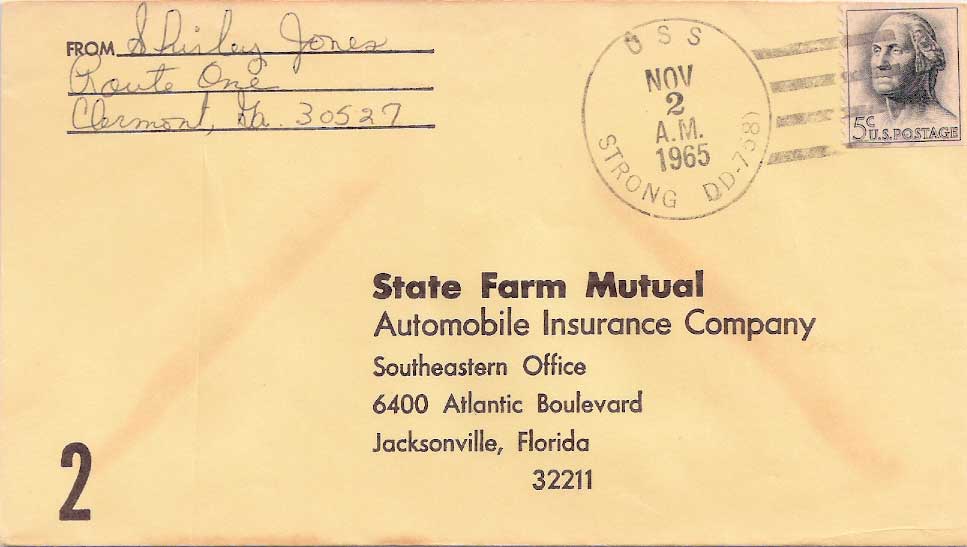 FROM Shirley Jones
Route One
Clermont, Ga. 30527
USS
NOV
2
A.M.
1965
STRONG DD-758)
5c
U.S. POSTAGE
State Farm Mutual
Automobile Insurance Company
Southeastern Office
6400 Atlantic Boulevard
Jacksonville, Florida
32211
2